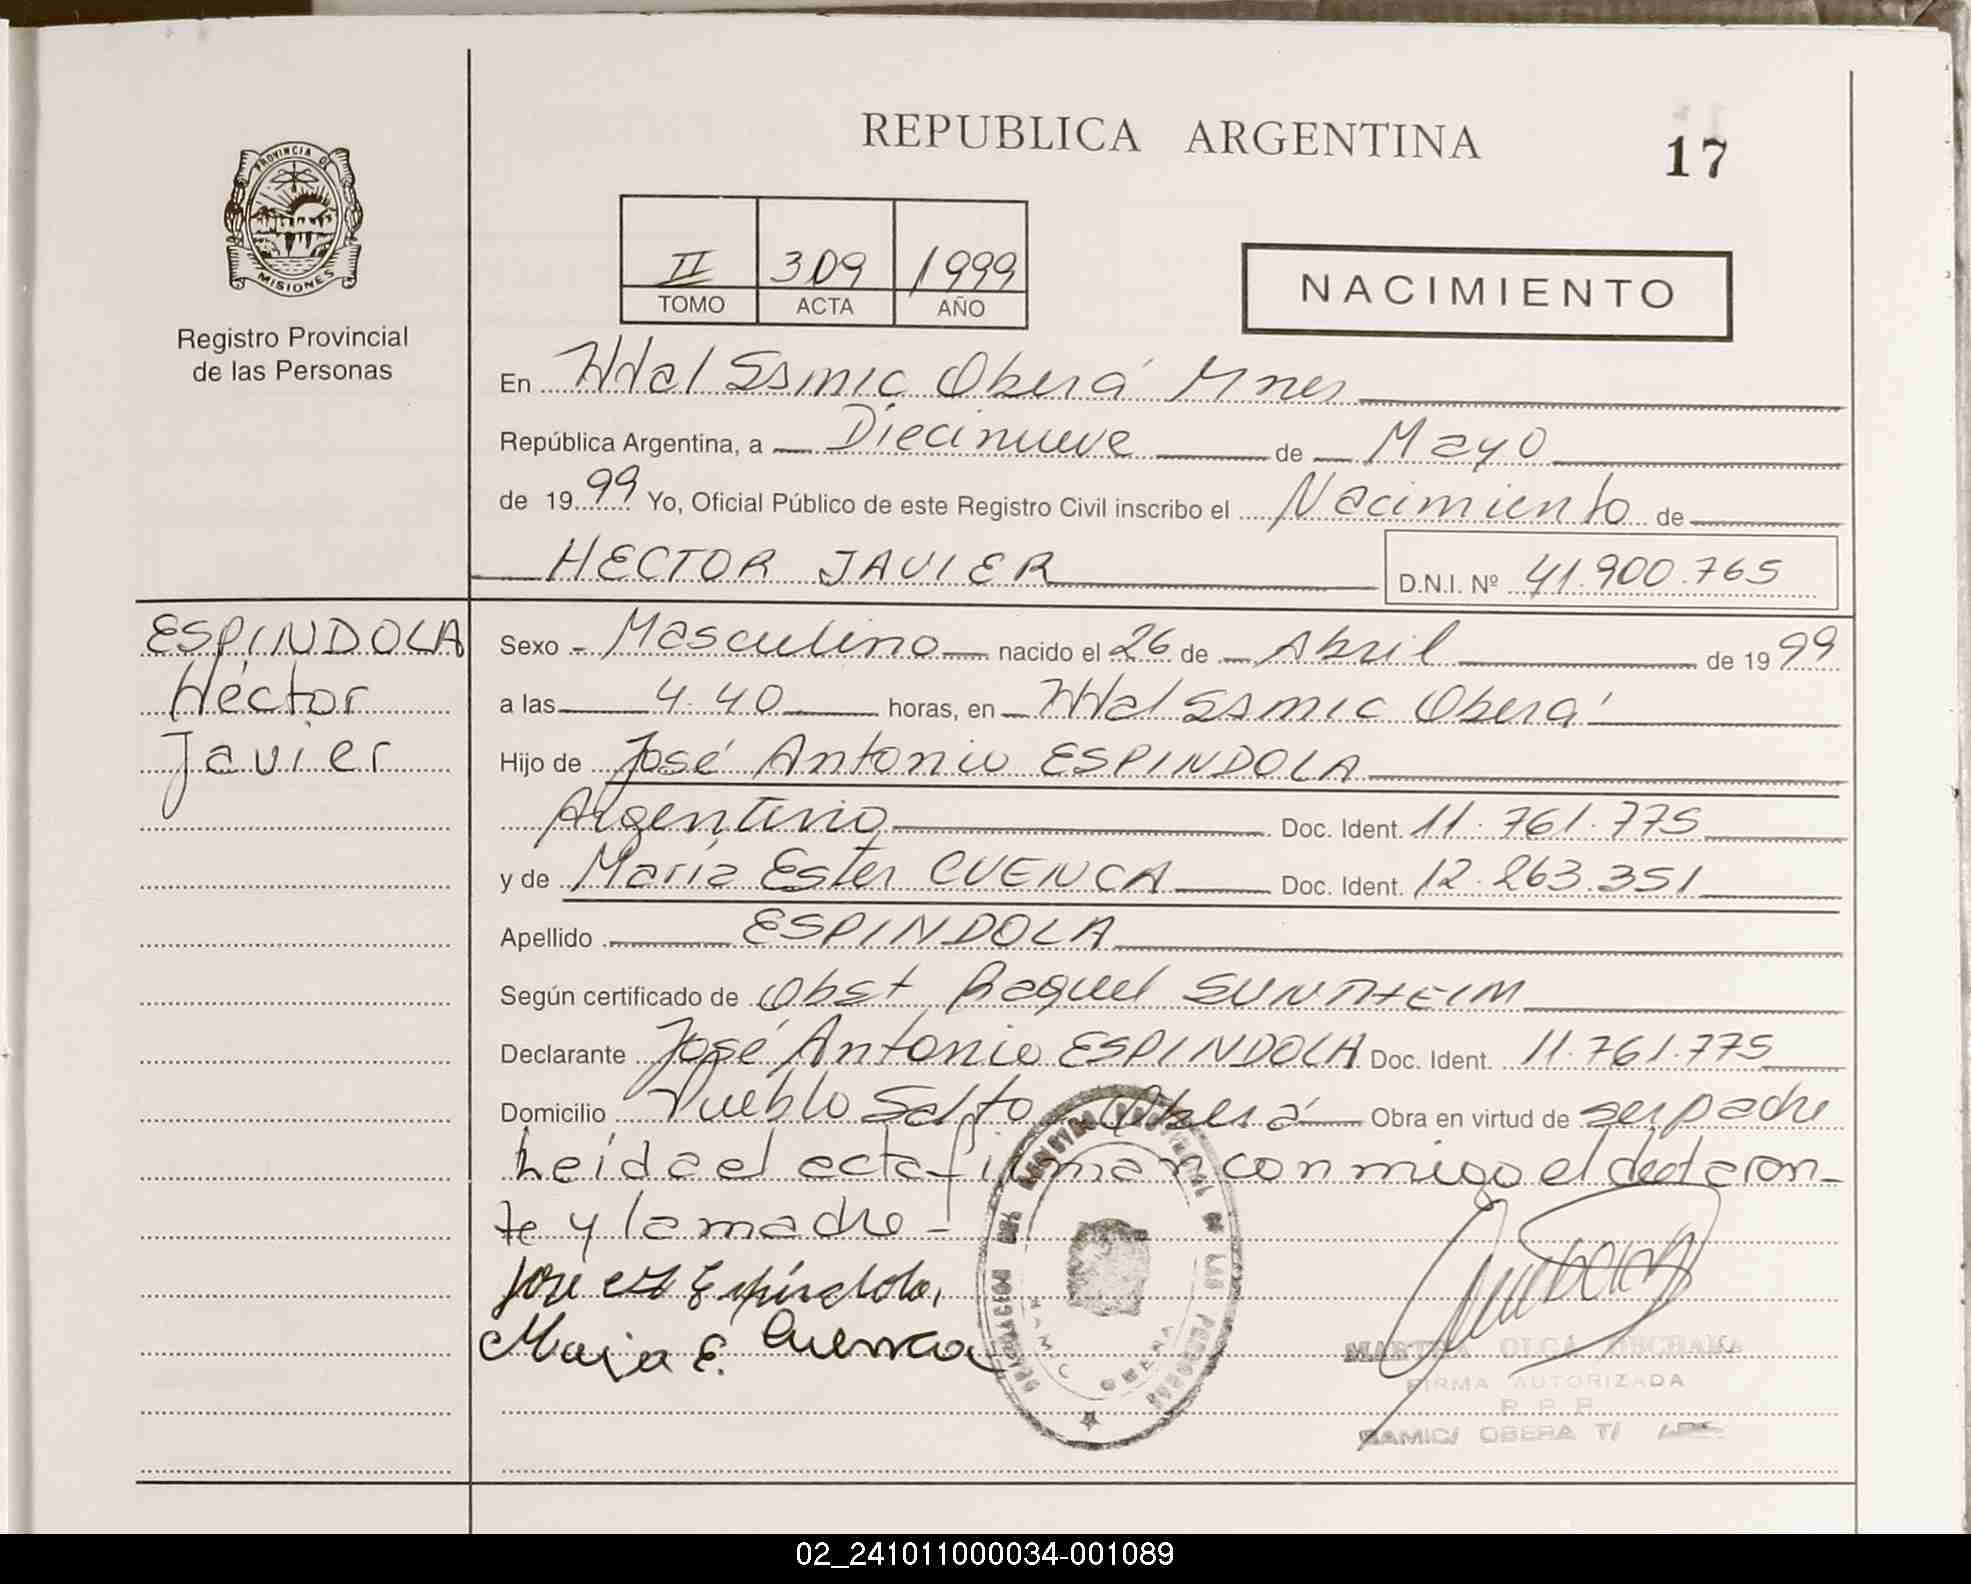 REPUBLICA ARGENTINA
17
PROVINCIA DE
MISIONES
Registro Provincial
de las Personas
II 309 1999
TOMO ACTA AÑO
NACIMIENTO
En HHal Ssmic Oberá Mnes
República Argentina, a Diecinueve de Mayo
de 1999 Yo, Oficial Público de este Registro Civil inscribo el Nacimiento de
HECTOR JAVIER D.N.I. Nº 41.900.765
ESPINDOLA
Héctor
Javier
Sexo - Masculino nacido el 26 de Abril de 1999
a las 4.40 horas, en HHal Ssmic Oberá
Hijo de José Antonio ESPINDOLA
Argentino Doc. Ident. 11.761.775
y de María Ester CUENCA Doc. Ident. 12.263.351
Apellido ESPINDOLA
Según certificado de Obst Raquel SUNTHEIM
Declarante José Antonio ESPINDOLA Doc. Ident. 11.761.775
Domicilio Pueblo Salto Oberá Obra en virtud de ser padre
Leída el acta firman conmigo el declaran-
te y la madre -
José Espíndola
Maria E. Cuenca
REGISTRO PROVINCIAL DE LAS PERSONAS
OBERA
MARTHA OLGA
FIRMA AUTORIZADA
R P P
SAMIC/ OBERA
02_241011000034-001089